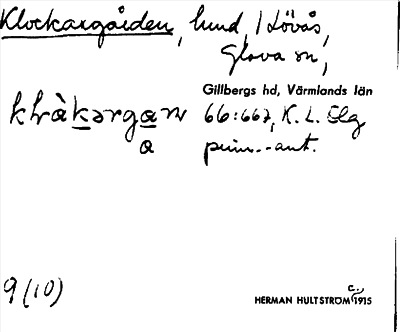 Klockargården, hund, / Lövås,
Glava sn,
Gillbergs hd, Värmlands län
66:667, K. L. Elg
prim.-ant.
9 (10)
c.
HERMAN HULTSTRÖM 1915